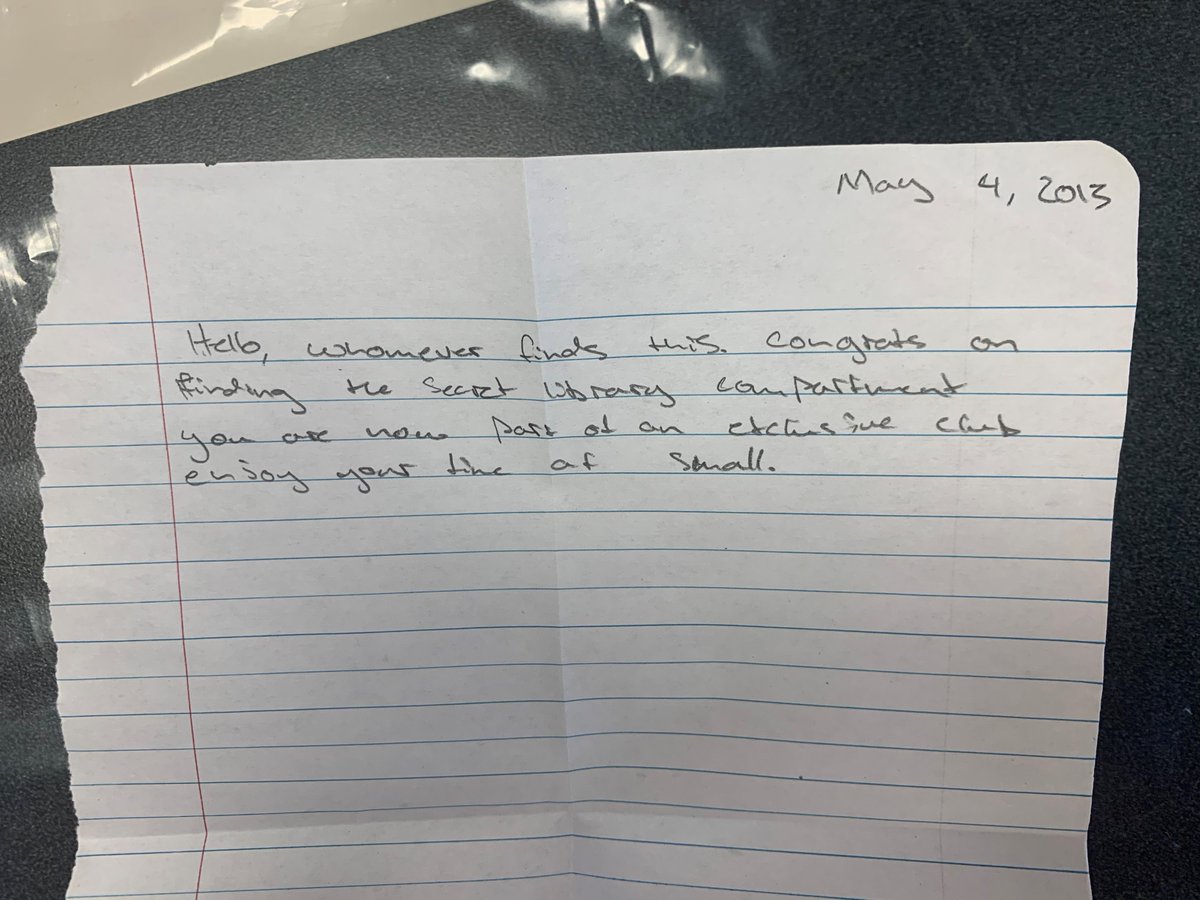 May 4, 2013
Hello, whomever finds this. Congrats on
finding the secret library compartment
you are now part of an exclusive club
enjoy your time at small.